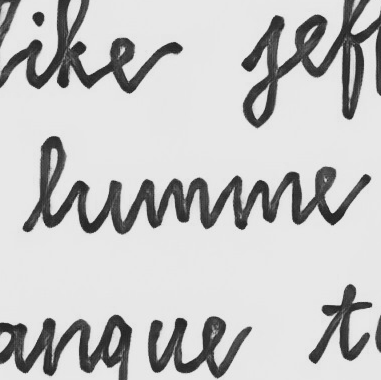 like jeff
lumme
anque to